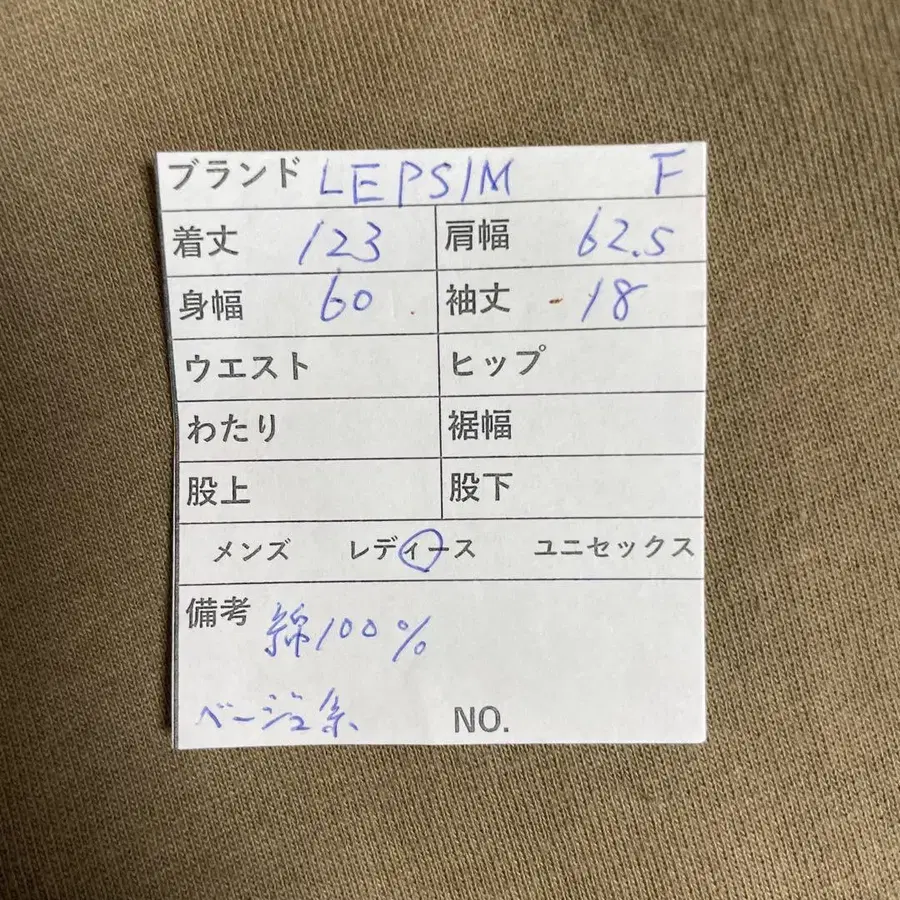 ブランド LEPSIM F
着丈 123 肩幅 62.5
身幅 60 袖丈 18
ウエスト ヒップ
わたり 裾幅
股上 股下
メンズ レディース ユニセックス
備考 綿100%
ベージュ系 NO.